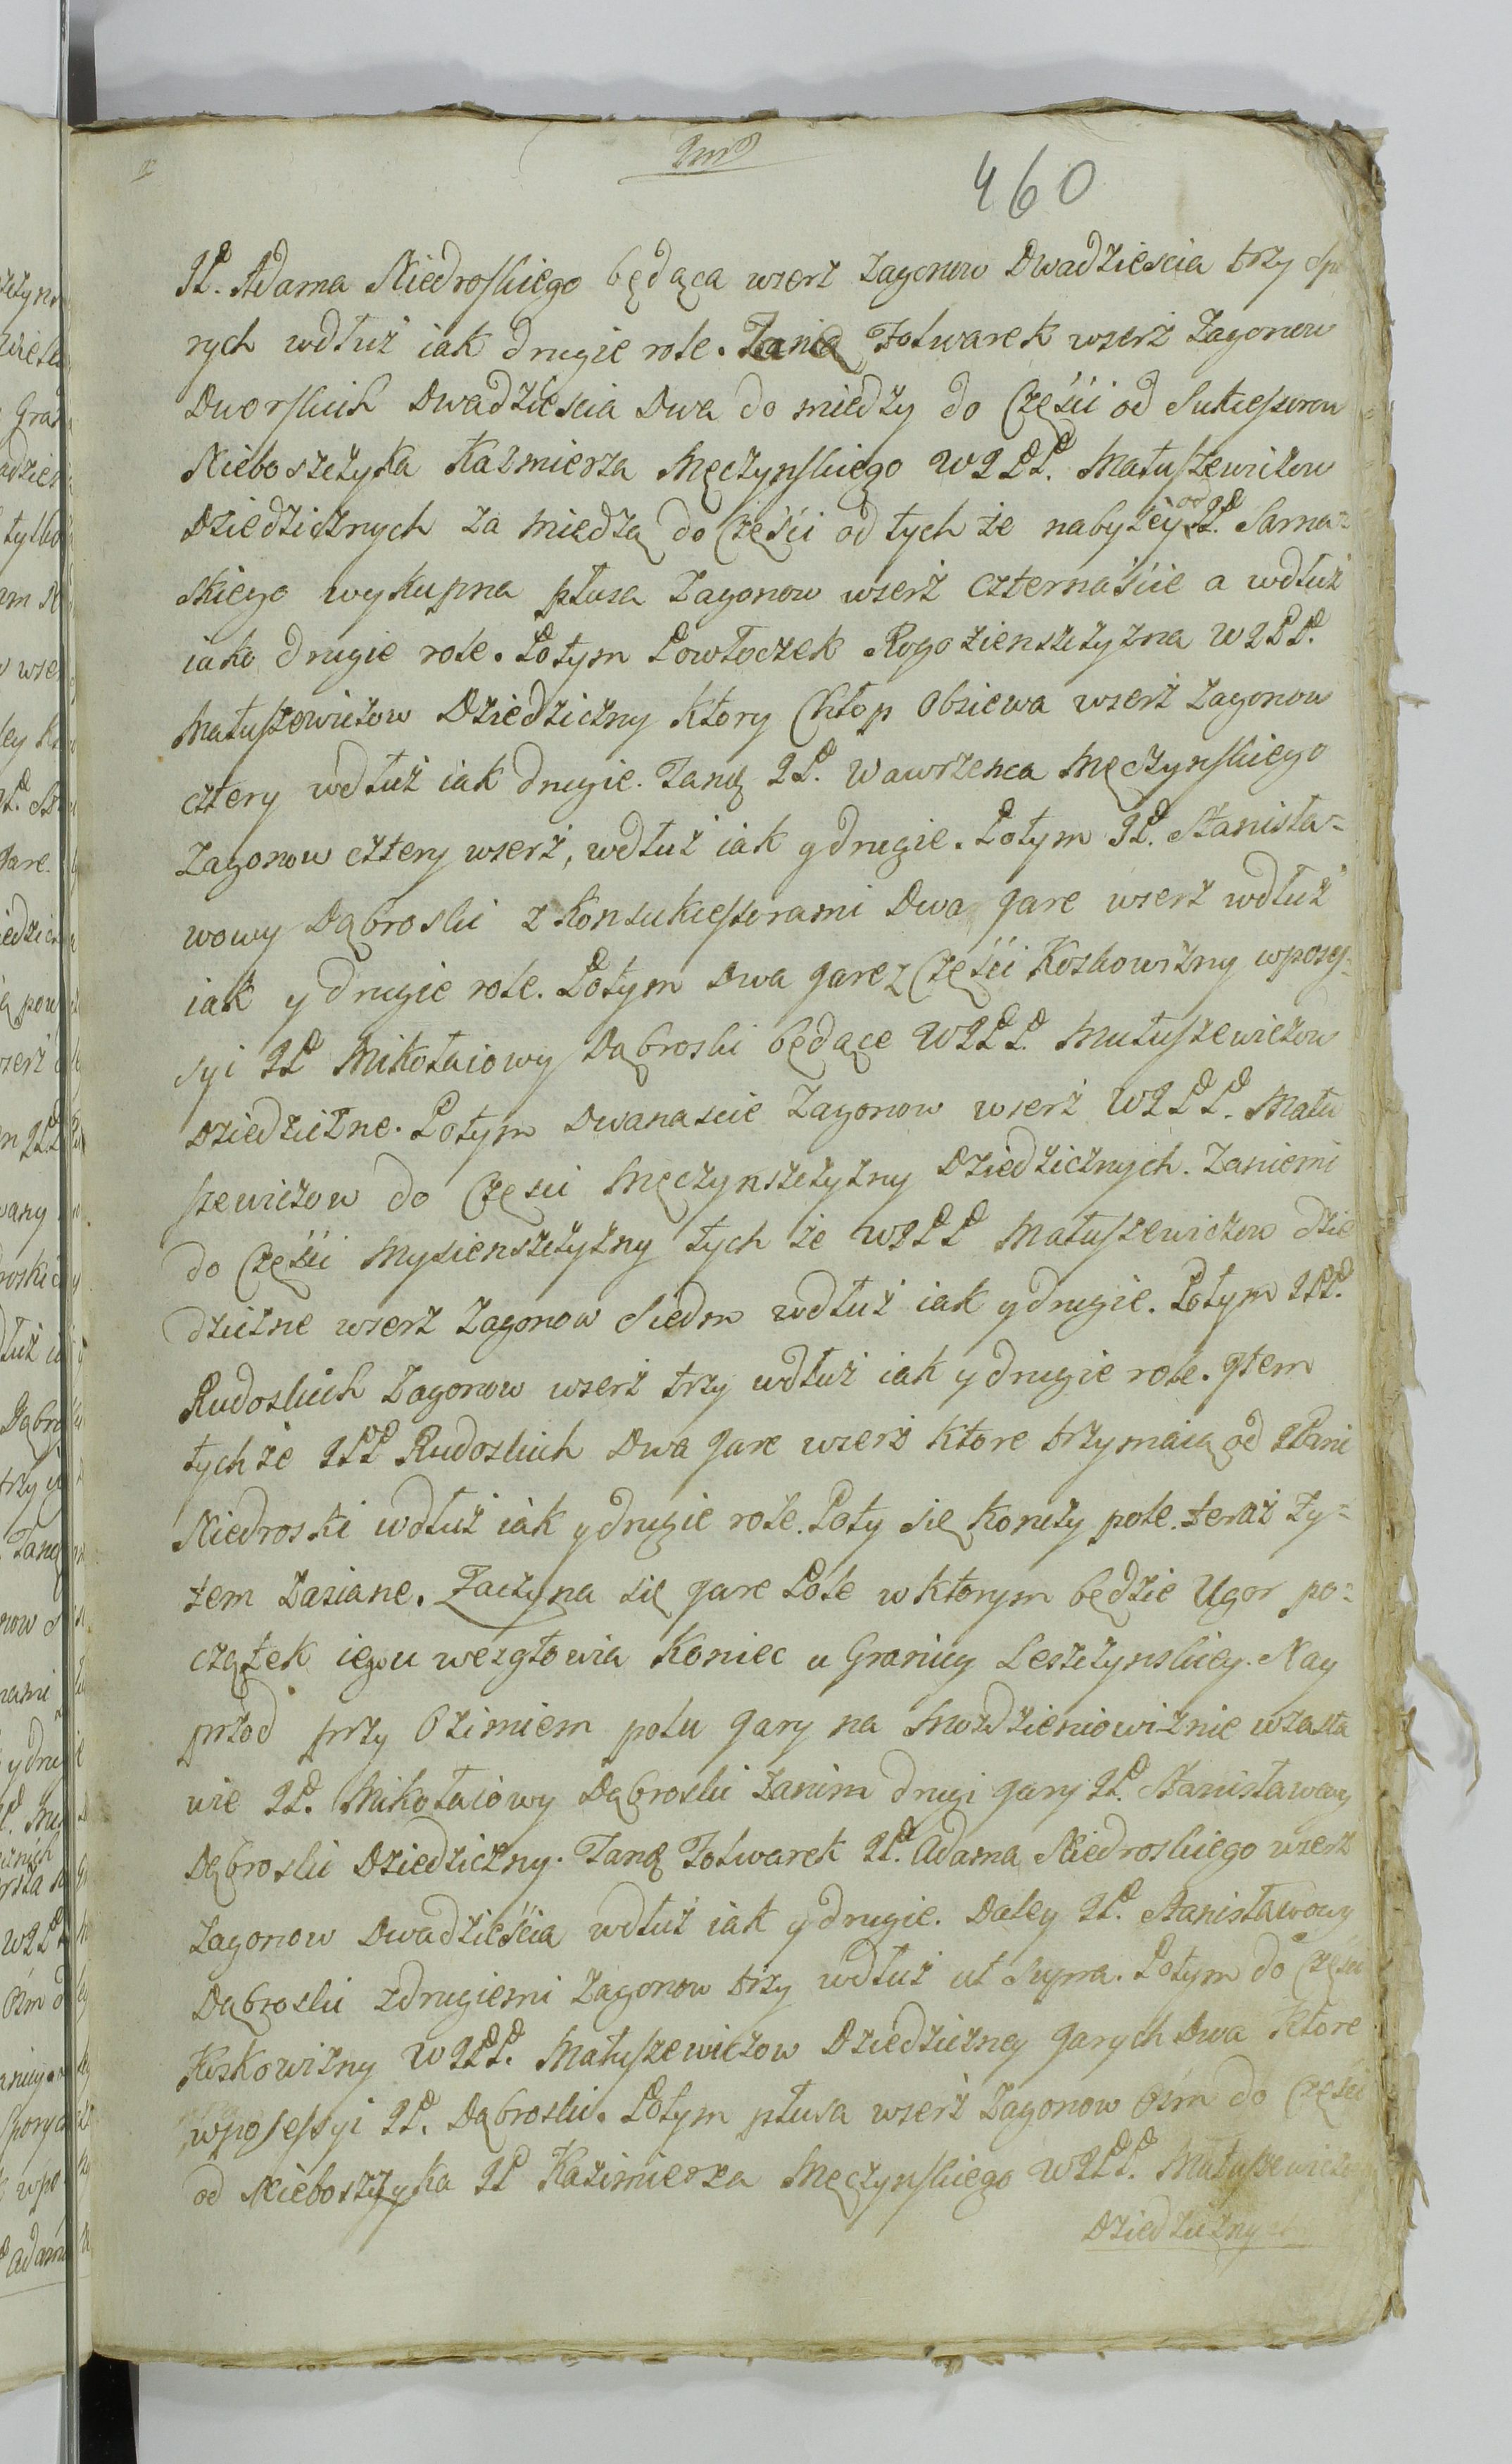 460
JP. Adama Niedroskiego będąca wserz Zagonow Dwadziescia trzy Spo
rych wdłuż iak drugie role. Zanią Folwarek wserż Zagonow
Dworskich Dwadziescia Dwa do miedzy do Częśći od Sukcessorow
Nieboszczyka Kazmierza Męczynskiego WJPP. Matuszewiczow
Dziedzicznych za miedzą do Częśći od tych że nabytey od JP. Sarna=
skiego wykupna płusa Zagonow wserż czternaśćie a wdłuż
iako drugie role. Potym Powłoczek Rogozienszczyzna WJPP.
Matuszewiczow Dziedziczny ktory Chłop Obsiewa wserż Zagonow
cztery wdłuż iak drugie. Zanę JP. Wawrzenca Męczynskiego
Zagonow cztery wserż, wdłuż iak y drugie. Potym JP. Stanisła=
wowy Dąbroski z Konsukcessorami Dwa Jare wserż wdłuż
iak y drugie role. Potym Dwa Jare z Częśći Koskowizny wposes=
syi JP Mikołaiowy Dąbroski będące WJPP. Matuszewiczow
Dziedziczne. Potym Dwanascie Zagonow wserż WJPP. Matu
szewiczow do Częsci Męczynszczyzny Dziedzicznych. Zaniemi
do Częśći Mysienszczyzny tych że WJPP Matuszewiczow dzie
dziczne wserż Zagonow Siedm wdłuż iak y drugie. Potym JPP.
Rudoskich Zagonow wserż trzy wdłuż iak y drugie role. Item
tych że JPP Rudoskich Dwa Jare wserż ktore trzymaią od JPani
Niedroski wdłuż iak y drugie role. Poty się konczy pole teraz ży=
tem zasiane. Zaczyna się Jare Pole w ktorym będzie Ugor po=
czątek iego u wezgłowia Koniec u Granicy Leszczynskiey. Nay
przod przy Ozimiem polu Jary na Mozdzieniowiznie wzasta
wie JP. Mikołaiowy Dąbroski zanim drugi Jary JP. Stanisławowy
Dąbroski Dziedziczny. Zanę Folwarek JP. Adama Niedroskiego wserż
Zagonow Dwadzieśćia wdłuż iak y drugie. Daley JP. Stanisławowy
Dąbroski zdrugiemi Zagonow trzy wdłuż ut Supra. Potym do Częsci
Koskowizny WJPP. Matuszewiczow Dziedziczney Jarych Dwa ktore
wposessyi JP. Dąbroski. Potym płusa wserż Zagonow Ośm do Częsci
od Nieboszczyka JP Kazimierza Męczynskiego WJPP. Matuszewiczow
Dziedzicznych